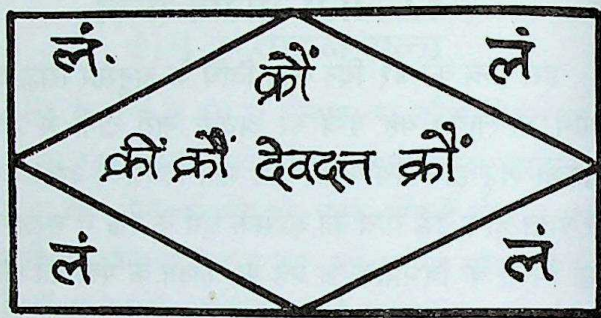 लं. क्रौं लं
क्रीं क्रौं देवदत्त क्रौं
लं लं